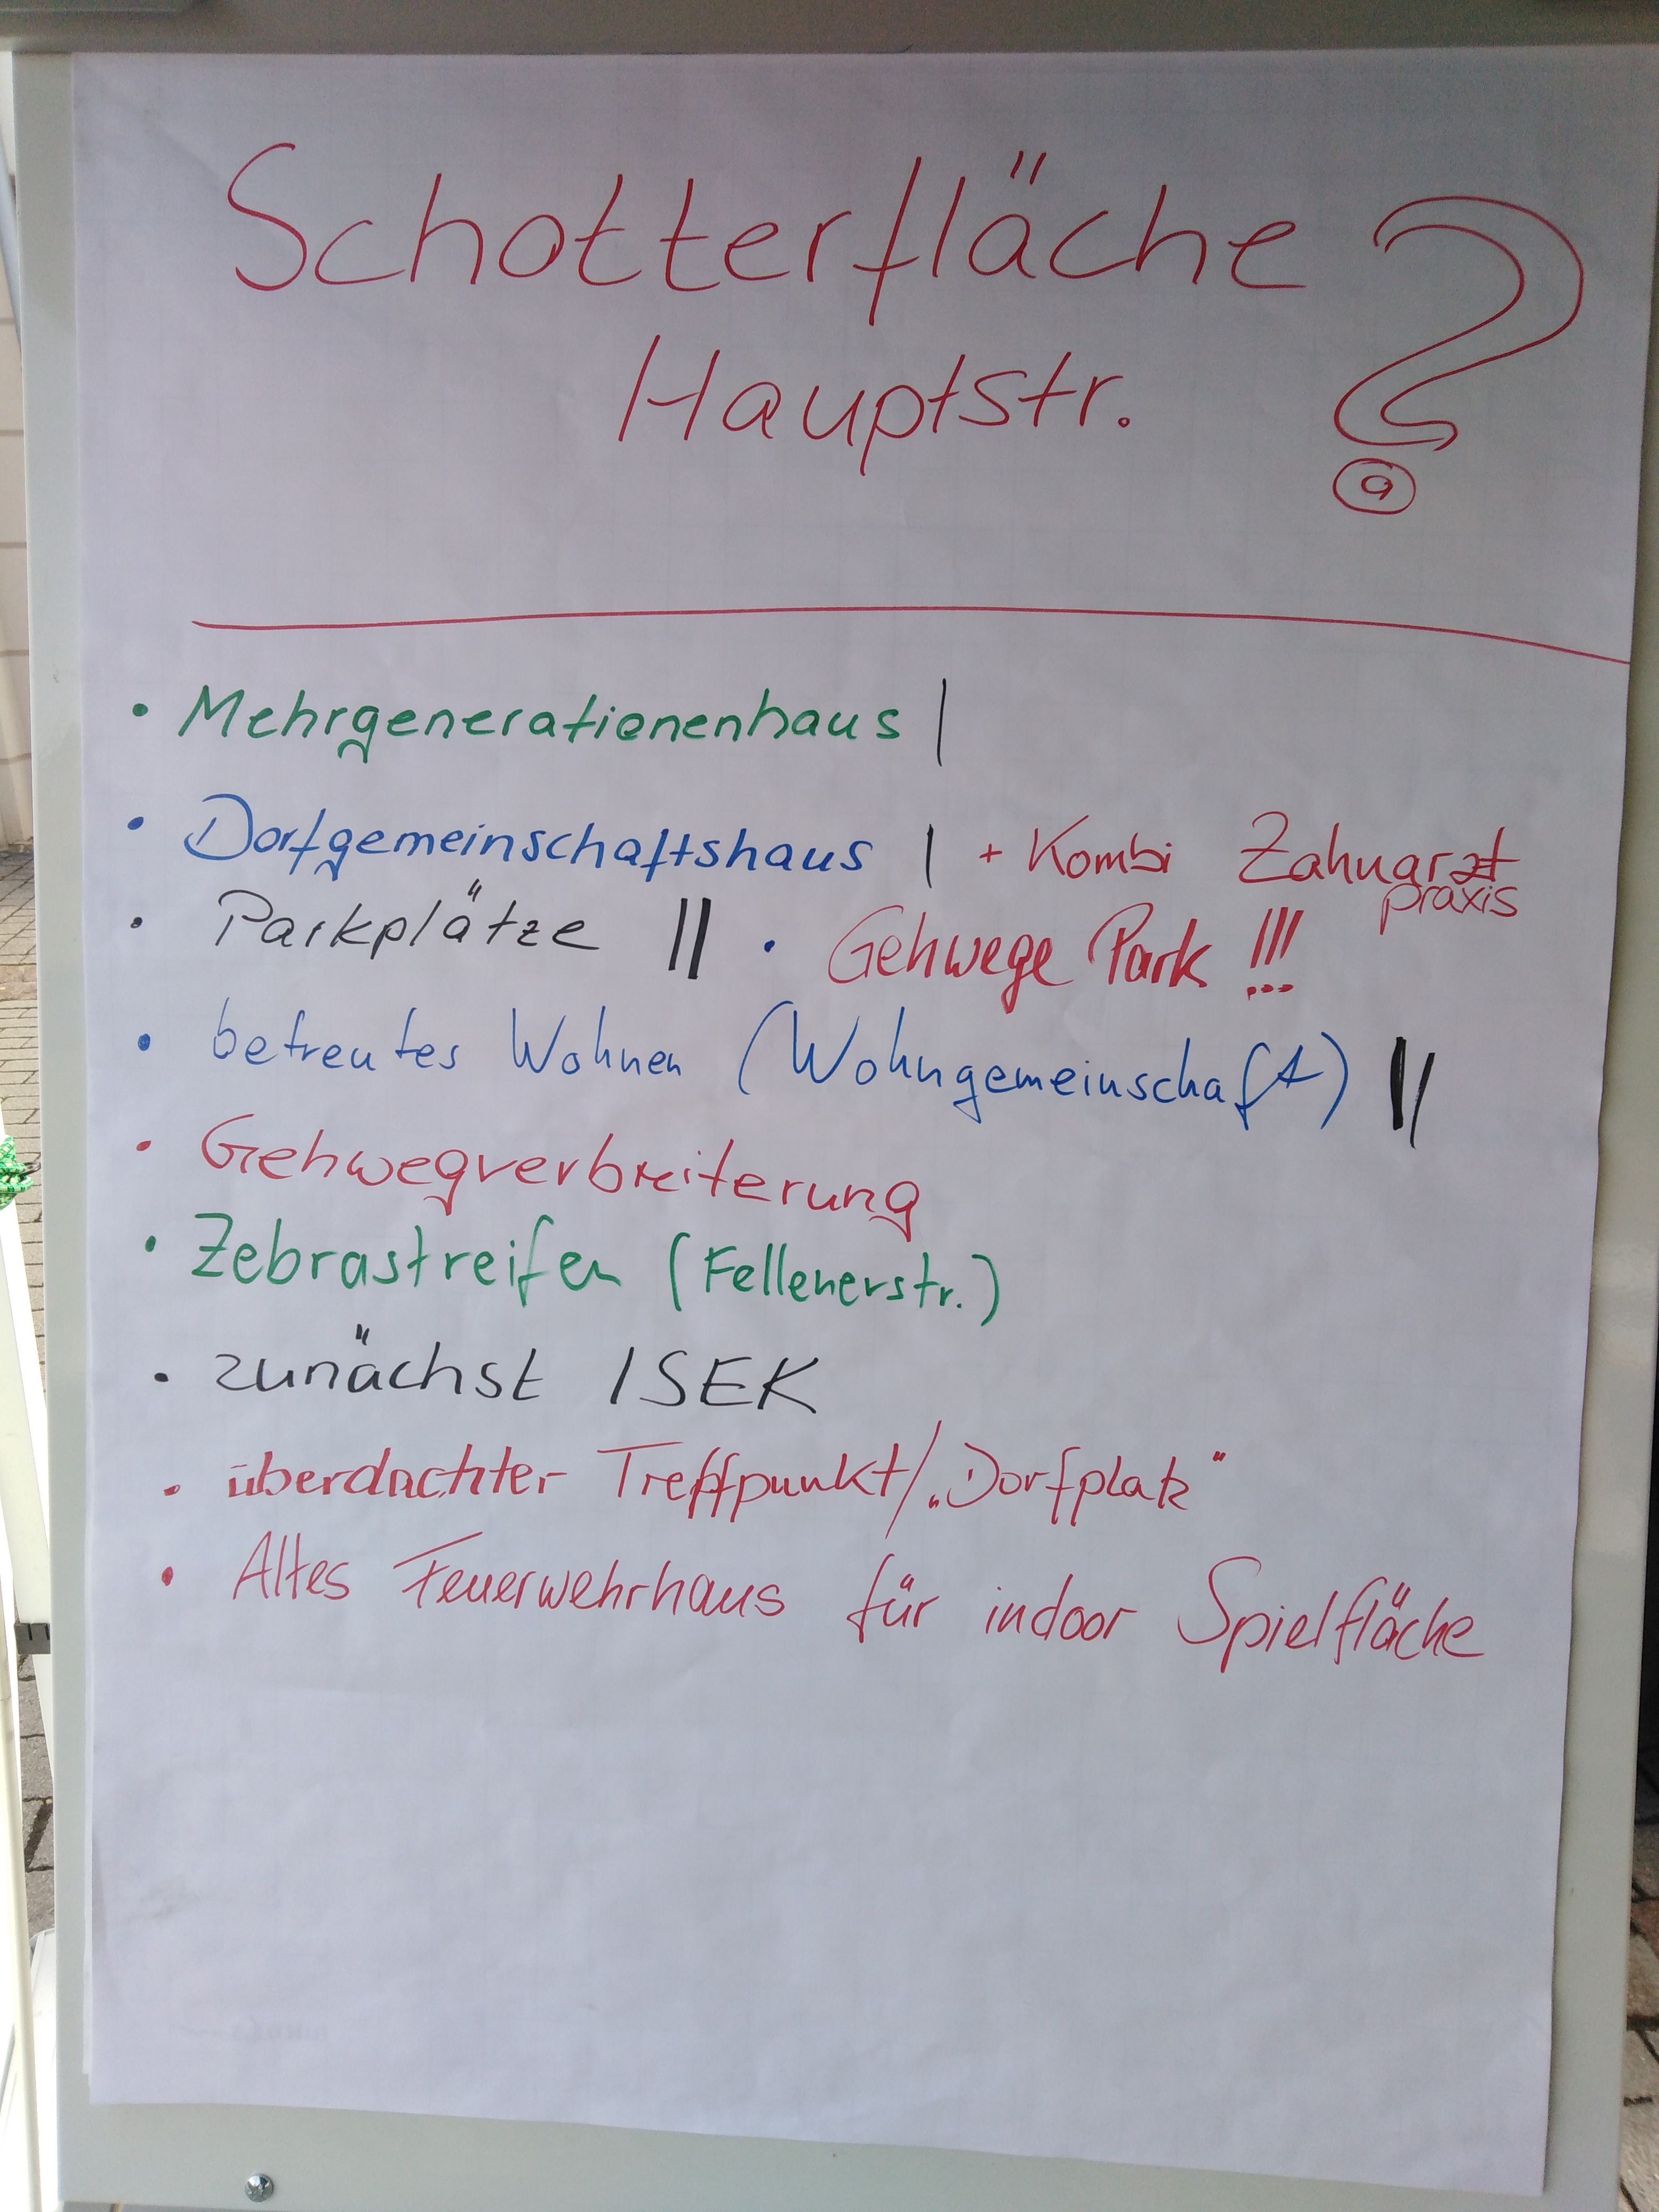 Schotterfläche ?
Hauptstr.
• Mehrgenerationenhaus |
• Dorfgemeinschaftshaus | + Kombi Zahnarzt
praxis
• Parkplätze || • Gehwege Park !!!
• betreutes Wohnen (Wohngemeinschaft) ||
• Gehwegverbreiterung
• Zebrastreifen (Fellenerstr.)
• zunächst ISEK
• überdachter Treffpunkt/„Dorfplatz"
• Altes Feuerwehrhaus für indoor Spielfläche